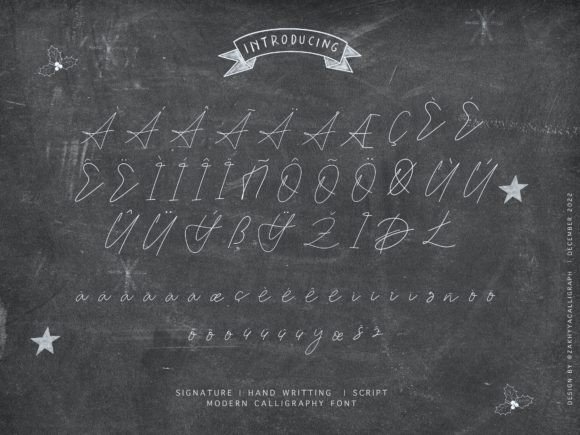 INTRODUCING
À Á Â Ã Ä Å Æ Ç È É
Ê Ë Ì Í Î Ï Ñ Ò Ó Ô Õ Ö Ø Ù Ú
Û Ü ß Ÿ Ž Ł
à á â ã ä å æ ç è é ê ë ì í î ï ñ ò ó
ô õ ö ù ú û ü ÿ œ š ž
SIGNATURE | HAND WRITTING | SCRIPT
MODERN CALLIGRAPHY FONT
DESIGN BY @ZAKHYYACALLIGRAPH | DECEMBER 2022